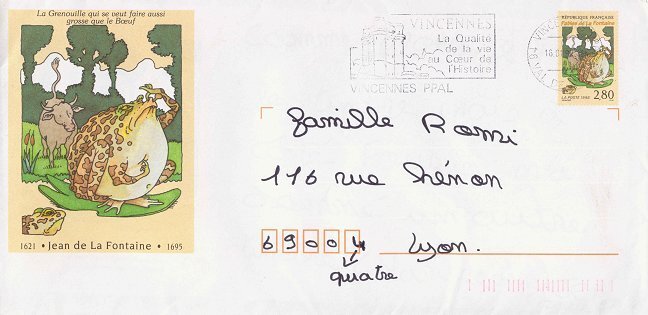 La Grenouille qui se veut faire aussi
grosse que le Bœuf
1621 • Jean de La Fontaine • 1695
VINCENNES
La Qualité
de la vie
au Cœur de
l'Histoire
VINCENNES PPAL
RÉPUBLIQUE FRANÇAISE
Fables de La Fontaine
LA POSTE 1995
2,80
famille Romi
116 rue hénon
69004 Lyon.
quatre